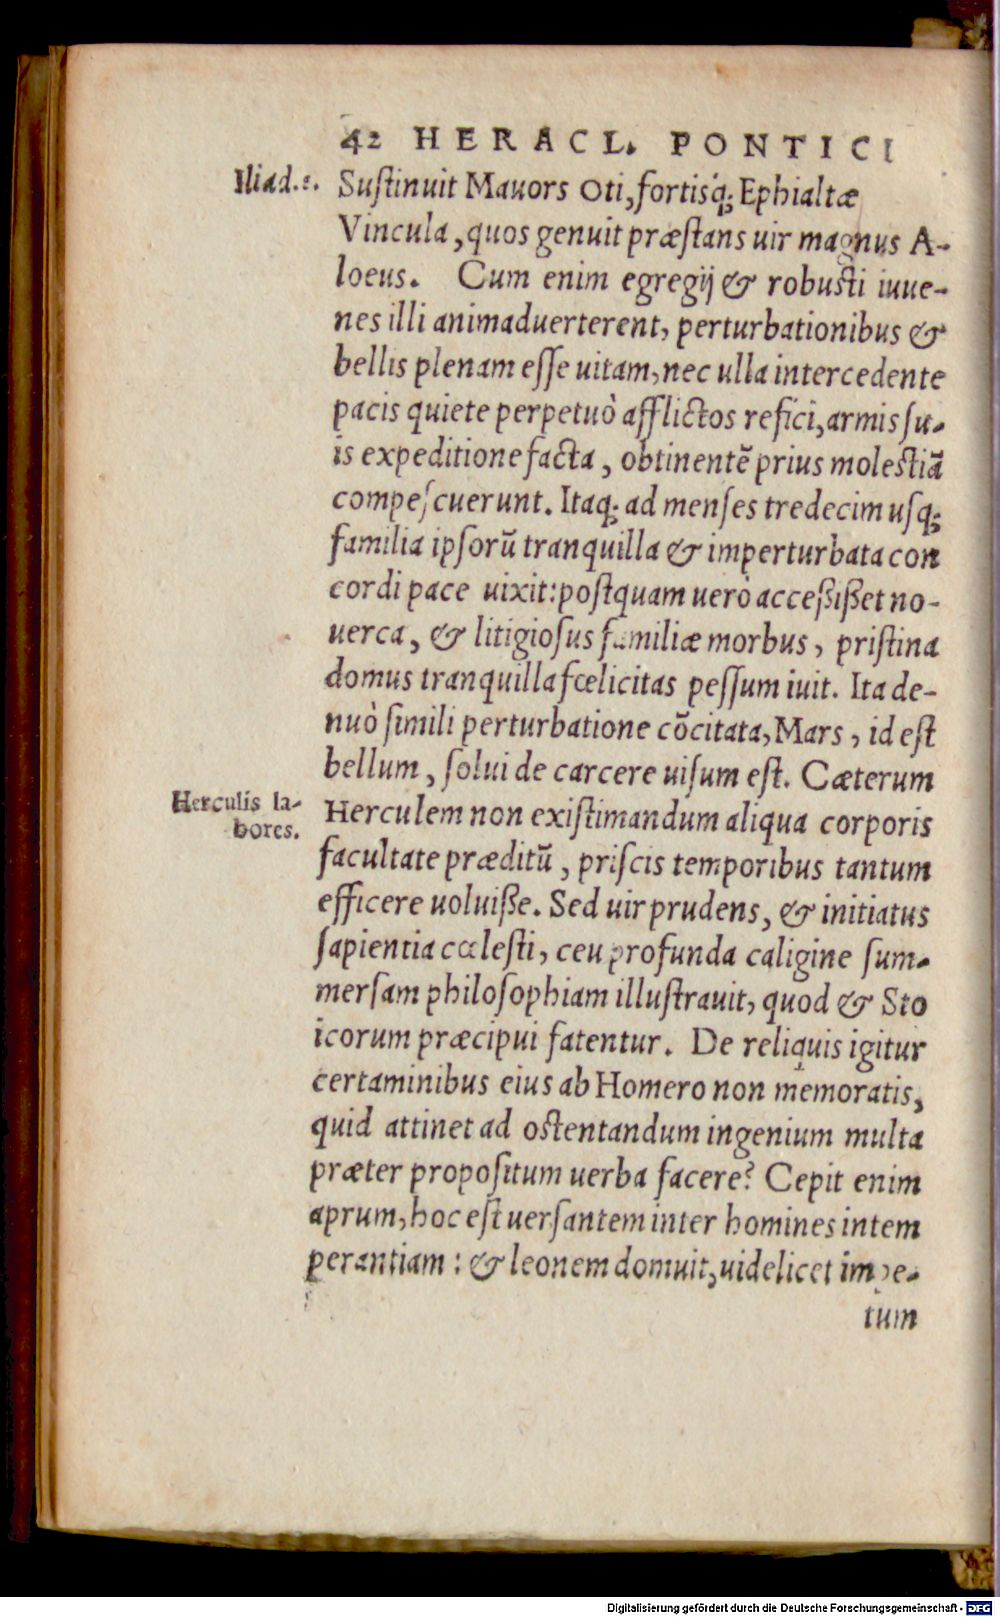 42 HERACL. PONTICI
Iliad.ε. Sustinuit Mauors Oti, fortisq́; Ephialtæ
Vincula, quos genuit præstans uir magnus A-
loeus. Cum enim egregij & robusti iuue-
nes illi animaduerterent, perturbationibus &
bellis plenam esse uitam, nec ulla intercedente
pacis quiete perpetuò afflictos refici, armis su-
is expeditione facta, obtinentẽ prius molestiã
compescuerunt. Itaq; ad menses tredecim usq;
familia ipsorũ tranquilla & imperturbata con
cordi pace uixit: postquam uerò accessisset no-
uerca, & litigiosus familiæ morbus, pristina
domus tranquilla fœlicitas pessum iuit. Ita de-
nuò simili perturbatione cõcitata, Mars, id est
bellum, solui de carcere uisum est. Cæterum
Herculis la-
bores.
Herculem non existimandum aliqua corporis
facultate præditũ, priscis temporibus tantum
efficere uoluisse. Sed uir prudens, & initiatus
sapientia cœlesti, ceu profunda caligine sum-
mersam philosophiam illustrauit, quod & Sto
icorum præcipui fatentur. De reliquis igitur
certaminibus eius ab Homero non memoratis,
quid attinet ad ostentandum ingenium multa
præter propositum uerba facere? Cepit enim
aprum, hoc est uersantem inter homines intem
perantiam: & leonem domuit, uidelicet impe-
tum
Digitalisierung gefördert durch die Deutsche Forschungsgemeinschaft - DFG